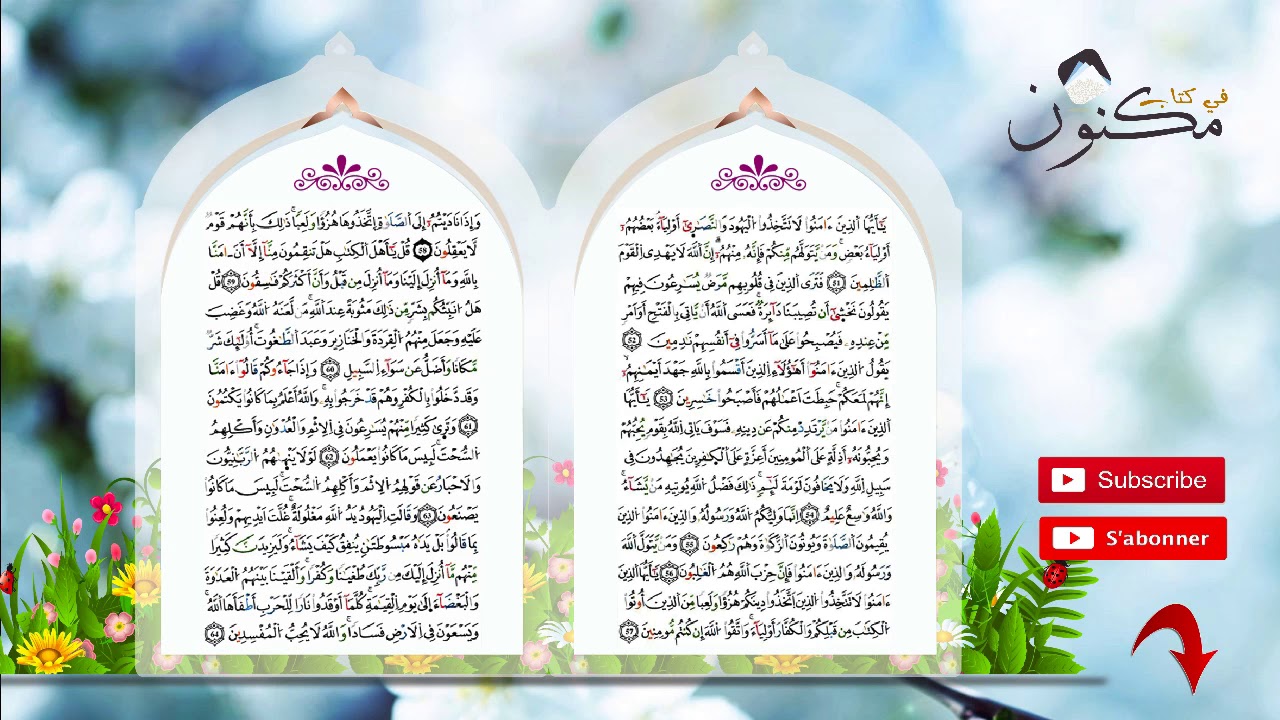 يَٰٓأَيُّهَا اَ۬لذِينَ ءَامَنُواْ لَا تَتَّخِذُواْ اُ۬لْيَهُودَ وَالنَّصَٰر۪ىٰٓ أَوْلِيَآءَۖ بَعْضُهُمُۥٓ
أَوْلِيَآءُ بَعْضٖۖ وَمَنْ يَّتَوَلَّهُم مِّنكُمْ فَإِنَّهُۥ مِنْهُمُۥٓۖ إِنَّ اَ۬للَّهَ لَا يَهْدِے اِ۬لْقَوْمَ
اَ۬لظَّٰلِمِينَ 51 فَتَرَى اَ۬لذِينَ فِے قُلُوبِهِم مَّرَضٞ يُسَٰرِعُونَ فِيهِمْ
يَقُولُونَ نَخْش۪ىٰٓ أَن تُصِيبَنَا دَآئِرَةٞۖ فَعَسَى اَ۬للَّهُ أَنْ يَّاتِيَ بِالْفَتْحِ أَوَ اَمْرٖ
مِّنْ عِندِهِۦ فَيُصْبِحُواْ عَلَىٰ مَآ أَسَرُّواْ فِےٓ أَنفُسِهِمْ نَٰدِمِينَ 52
يَقُولُ اُ۬لذِينَ ءَامَنُوٓاْ أَهَٰٓؤُلَآءِ اِ۬لذِينَ أَقْسَمُواْ بِاللَّهِ جَهْدَ أَيْمَٰنِهِمُۥٓ
إِنَّهُمْ لَمَعَكُمْۖ حَبِطَتَ اَعْمَٰلُهُمْ فَأَصْبَحُواْ خَٰسِرِينَ 53 يَٰٓأَيُّهَا
اَ۬لذِينَ ءَامَنُواْ مَنْ يَّرْتَدِدْ مِنكُمْ عَن دِينِهِۦ فَسَوْفَ يَاتِے اِ۬للَّهُ بِقَوْمٖ يُحِبُّهُمْ
وَيُحِبُّونَهُۥٓ أَذِلَّةٍ عَلَى اَ۬لْمُومِنِينَ أَعِزَّةٍ عَلَى اَ۬لْكٰ۪فِرِينَ يُجَٰهِدُونَ فِے
سَبِيلِ اِ۬للَّهِ وَلَا يَخَافُونَ لَوْمَةَ لَآئِمٖۖ ذَٰلِكَ فَضْلُ اُ۬للَّهِ يُوتِيهِ مَنْ يَّشَآءُۖ
وَاللَّهُ وَٰسِعٌ عَلِيمٌۖ 54 اِنَّمَا وَلِيُّكُمُ اُ۬للَّهُ وَرَسُولُهُۥ وَالذِينَ ءَامَنُواْ اُ۬لذِينَ
يُقِيمُونَ اَ۬لصَّلَوٰةَ وَيُوتُونَ اَ۬لزَّكَوٰةَ وَهُمْ رَٰكِعُونَۖ 55 وَمَنْ يَّتَوَلَّ اَ۬للَّهَ
وَرَسُولَهُۥ وَالذِينَ ءَامَنُواْ فَإِنَّ حِزْبَ اَ۬للَّهِ هُمُ اُ۬لْغَٰلِبُونَۖ 56 يَٰٓأَيُّهَا اَ۬لذِينَ
ءَامَنُواْ لَا تَتَّخِذُواْ اُ۬لذِينَ اَ۪تَّخَذُواْ دِينَكُمْ هُزُؤاٗ وَلَعِباٗ مِّنَ اَ۬لذِينَ أُوتُواْ
اُ۬لْكِتَٰبَ مِن قَبْلِكُمْ وَالْكُفَّارَ أَوْلِيَآءَۖ وَاتَّقُواْ اُ۬للَّهَ إِن كُنتُم مُّومِنِينَۖ 57
وَإِذَا نَادَيْتُمُۥٓ إِلَى اَ۬لصَّلَوٰةِ اِ۪تَّخَذُوهَا هُزُؤاٗ وَلَعِباٗۖ ذَٰلِكَ بِأَنَّهُمْ قَوْمٞ
لَّا يَعْقِلُونَۖ 58 قُلْ يَٰٓأَهْلَ اَ۬لْكِتَٰبِ هَلْ تَنقِمُونَ مِنَّآ إِلَّآ أَنَ اٰمَنَّا
بِاللَّهِ وَمَآ أُنزِلَ إِلَيْنَا وَمَآ أُنزِلَ مِن قَبْلُ وَأَنَّ أَكْثَرَكُمْ فَٰسِقُونَۖ 59 قُلْ
هَلُ ا۟نَبِّئُكُم بِشَرّٖ مِّن ذَٰلِكَ مَثُوبَةً عِندَ اَ۬للَّهِۖ مَن لَّعَنَهُ اُ۬للَّهُ وَغَضِبَ
عَلَيْهِ وَجَعَلَ مِنْهُمُ اُ۬لْقِرَدَةَ وَالْخَنَازِيرَ وَعَبَدَ اَ۬لطَّٰغُوتَۖ أُوْلَٰٓئِكَ شَرّٞ
مَّكَاناٗ وَأَضَلُّ عَن سَوَآءِ اِ۬لسَّبِيلِۖ 60 وَإِذَا جَآءُوكُمْ قَالُوٓاْ ءَامَنَّا
وَقَد دَّخَلُواْ بِالْكُفْرِ وَهُمْ قَدْ خَرَجُواْ بِهِۦۖ وَاللَّهُ أَعْلَمُ بِمَا كَانُواْ يَكْتُمُونَۖ
61 وَتَر۪ىٰ كَثِيراٗ مِّنْهُمْ يُسَٰرِعُونَ فِے اِ۬لِاثْمِ وَالْعُدْوَٰنِ وَأَكْلِهِمُ
اُ۬لسُّحْتَۖ لَبِيسَ مَا كَانُواْ يَعْمَلُونَۖ 62 لَوْلَا يَنْهَيٰهُمُ اُ۬لرَّبَّٰنِيُّونَ
وَالَاحْبَارُ عَن قَوْلِهِمُ اُ۬لِاثْمَ وَأَكْلِهِمُ اُ۬لسُّحْتَۖ لَبِيسَ مَا كَانُواْ
يَصْنَعُونَۖ 63 وَقَالَتِ اِ۬لْيَهُودُ يَدُ اُ۬للَّهِ مَغْلُولَةٌۖ غُلَّتَ اَيْدِيهِمْ وَلُعِنُواْ
بِمَا قَالُواْۖ بَلْ يَدَٰهُ مَبْسُوطَتَٰنِ يُنفِقُ كَيْفَ يَشَآءُۖ وَلَيَزِيدَنَّ كَثِيراٗ
مِّنْهُم مَّآ أُنزِلَ إِلَيْكَ مِن رَّبِّكَ طُغْيَٰناٗ وَكُفْراٗۖ وَأَلْقَيْنَا بَيْنَهُمُ اُ۬لْعَدَٰوَةَ
وَالْبَغْضَآءَ اِلَىٰ يَوْمِ اِ۬لْقِيَٰمَةِۖ كُلَّمَآ أَوْقَدُواْ نَاراٗ لِّلْحَرْبِ أَطْفَأَهَا اَ۬للَّهُۖ
وَيَسْعَوْنَ فِے اِ۬لَارْضِ فَسَاداٗۖ وَاللَّهُ لَا يُحِبُّ اُ۬لْمُفْسِدِينَۖ 64
في كتاب
مكنون
Subscribe
S'abonner